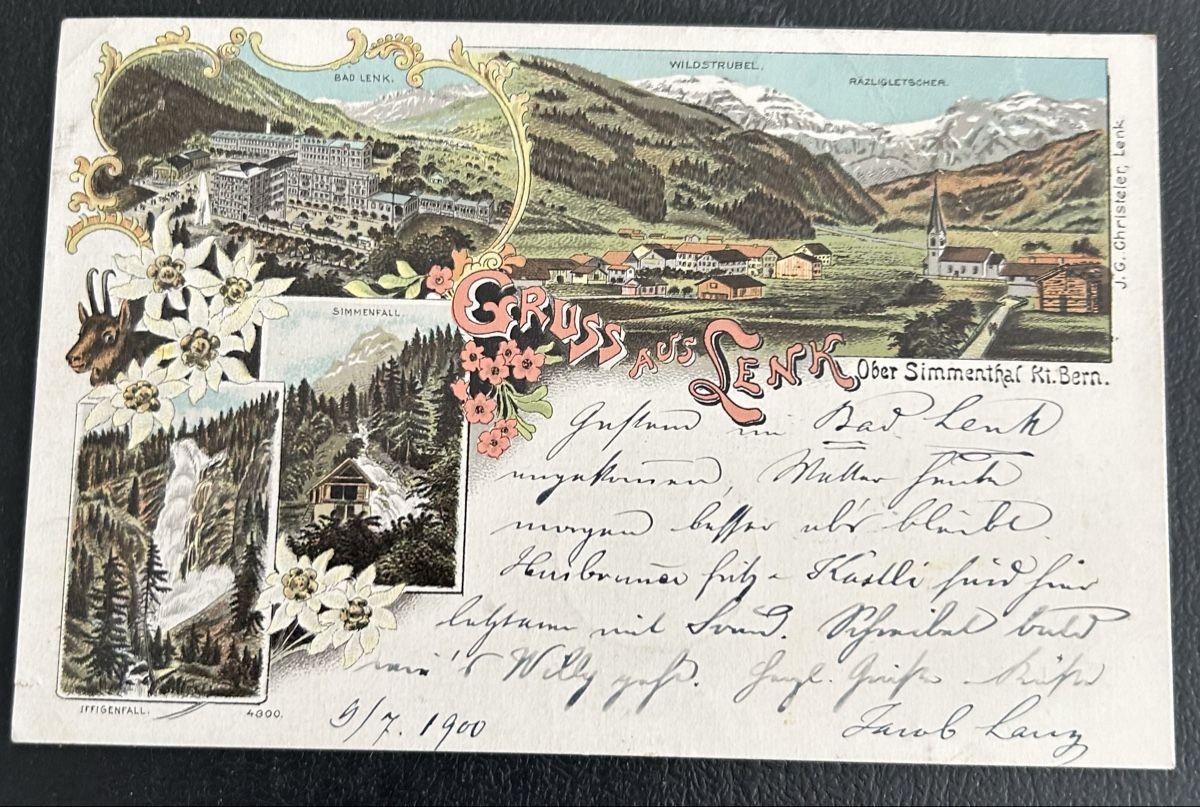 BAD LENK.
WILDSTRUBEL.
RÄZLIGLETSCHER.
J. G. Christeler, Lenk.
SIMMENFALL.
GRUSS AUS LENK
Ober Simmenthal Kt. Bern.
IFFIGENFALL.
4300.
Gestern in Bad Lenk
angekommen, Wetter heute
morgen besser ob's bleibt.
Fritz & Kästli sind hier
mit Schreibet bald
wie's Willy geht. Herzl. Grüße Küsse
Jacob Lanz
9/7. 1900